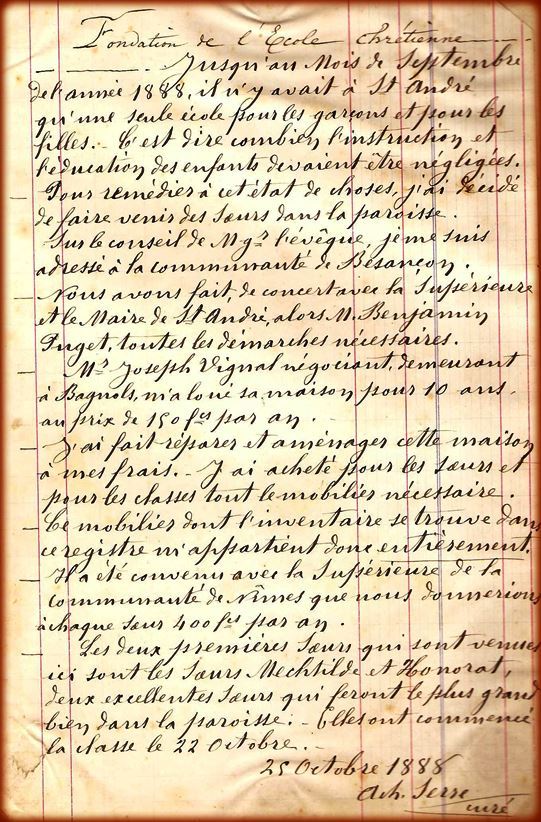 Fondation de l'Ecole chrétienne
Jusqu'au Mois de Septembre
de l'année 1888, il n'y avait à St André
qu'une seule école pour les garçons et pour les
filles. - C'est dire combien l'instruction et
l'éducation des enfants devaient être négligées.
Pour remédier à cet état de choses, j'ai décidé
de faire venir des Sœurs dans la paroisse.
Sur le conseil de Mgr l'évêque, je me suis
adressé à la communauté de Besançon.
Nous avons fait, de concert avec la Supérieure
et le Maire de St André, alors M. Benjamin
Puget, toutes les démarches nécessaires.
Mr Joseph Vignal négociant, demeurant
à Bagnols, m'a loué sa maison pour 10 ans,
au prix de 150 fcs par an.
J'ai fait réparer et aménager cette maison
à mes frais. - J'ai acheté pour les sœurs et
pour les classes tout le mobilier nécessaire.
Ce mobilier dont l'inventaire se trouve dans
ce registre m'appartient donc entièrement.
Il a été convenu avec la Supérieure de la
communauté de Nîmes que nous donnerions
à chaque sœur 400 fcs par an.
Les deux premières Sœurs qui sont venues
ici sont les Sœurs Mechtilde et Honorat,
deux excellentes Sœurs qui feront le plus grand
bien dans la paroisse. - Elles ont commencé
la classe le 22 Octobre. -
25 Octobre 1888
Ach. Serre
curé